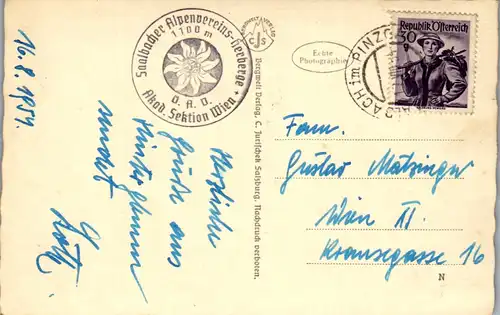 16.8.1954.
Saalbacher Alpenvereins-Herberge
1100 m
Ö. A. V.
Akad. Sektion Wien
Herzliche
Grüße aus
Hinterglemm
sendet
BERGWELT VERLAG
C J S
Bergwelt Verlag, C. Jurischek Salzburg. Nachdruck verboten.
Echte
Photographie
Republik Österreich
BACH im PINZG
Fam.
Gustav Matzinger
Wien XI.
Kransegasse 16
N